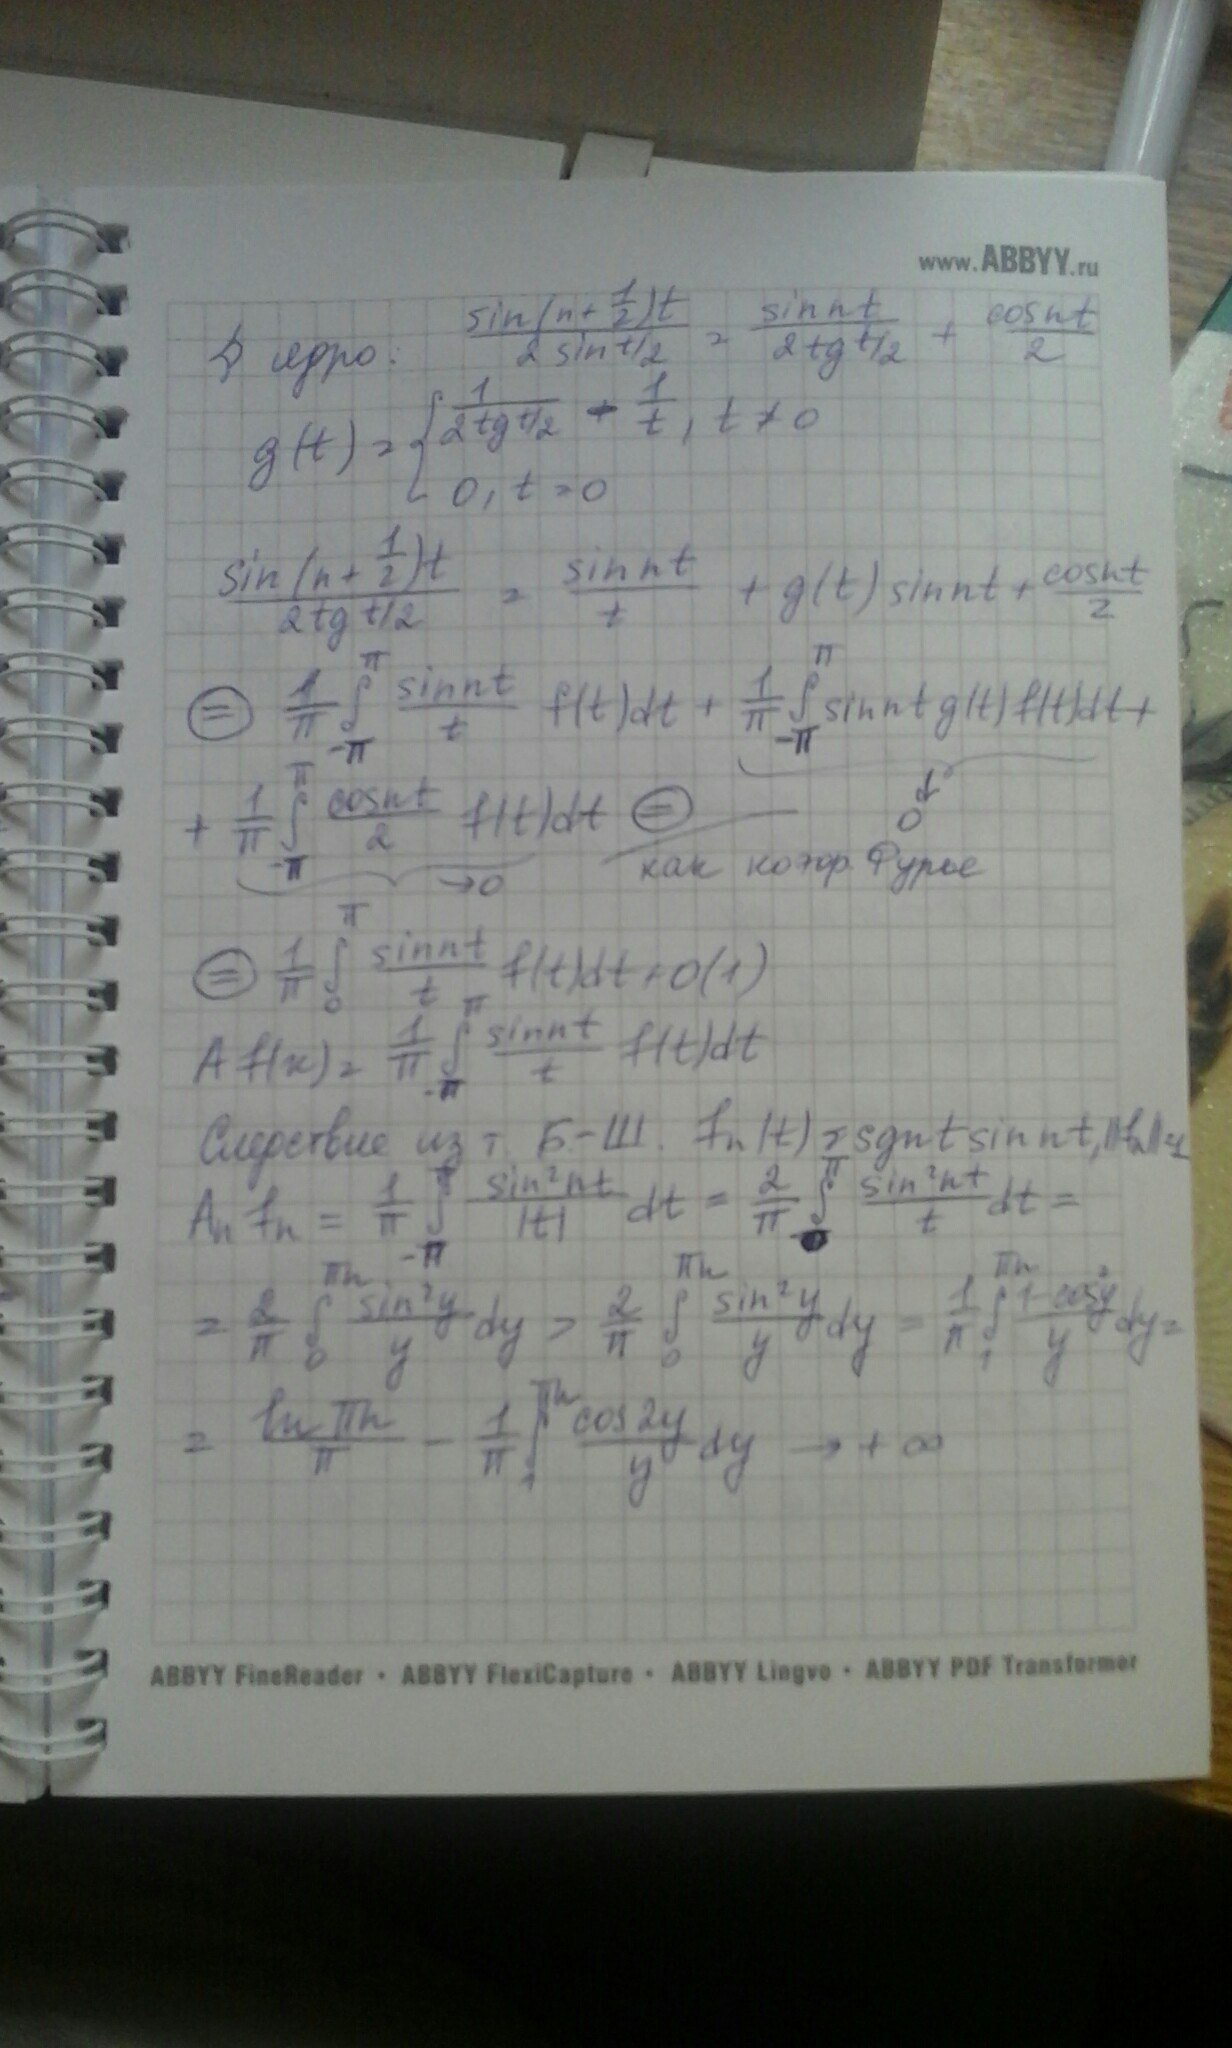 www.ABBYY.ru
D ядро: sin(n+1/2)t / 2 sin t/2 = sinnt / 2tg t/2 + cosnt / 2
g(t) = { 1 / 2tg t/2 - 1/t, t ≠ 0
0, t = 0
sin(n+1/2)t / 2tg t/2 = sinnt / t + g(t) sinnt + cosnt / 2
(=) 1/π ∫_{-π}^{π} sinnt / t f(t)dt + 1/π ∫_{-π}^{π} sinnt g(t) f(t)dt +
+ 1/π ∫_{-π}^{π} cosnt / 2 f(t)dt (=)
→ 0
↓ 0
как коэф. Фурье
(=) 1/π ∫_{0}^{π} sinnt / t f(t)dt + o(1)
A f(x) = 1/π ∫_{-π}^{π} sinnt / t f(t)dt
Следствие из т. Б.-Ш. fn(t) = sgnt sinnt,
An fn = 1/π ∫_{-π}^{π} sin²nt / |t| dt = 2/π ∫_{0}^{π} sin²nt / t dt =
= 2/π ∫_{0}^{πn} sin²y / y dy > 2/π ∫_{0}^{πn} sin²y / y dy = 1/π ∫_{1}^{πn} 1-cos²y / y dy =
= ln πn / π - 1/π ∫_{1}^{πn} cos2y / y dy → +∞
ABBYY FineReader • ABBYY FlexiCapture • ABBYY Lingvo • ABBYY PDF Transformer